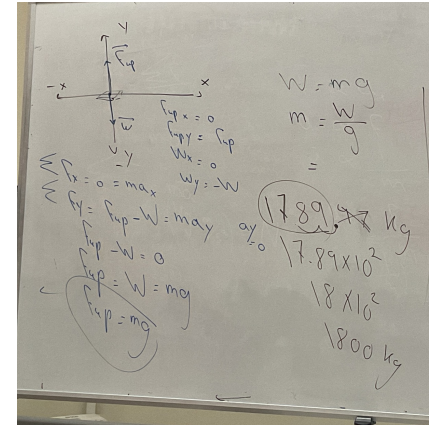 Y
F up
-x
x
W
-Y
Fup x = 0
Fup y = Fup
Wx = 0
Wy = -W
Σ Fx = 0 = max
Σ Fy = Fup - W = may ay = 0
Fup - W = 0
Fup = W = mg
Fup = mg
W = mg
m = W/g
=
1789.97 kg
17.89 x 10²
18 x 10²
1800 kg